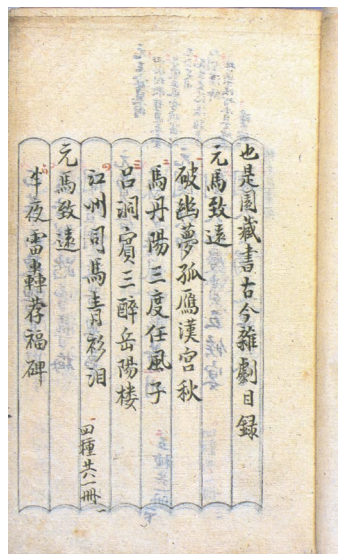 也是園藏書古今雜劇目録
元馬致遠
破幽夢孤雁漢宮秋
馬丹陽三度任風子
呂洞賓三醉岳陽楼
江州司馬青衫泪
四種共一冊
元馬致遠
半夜雷轟荐福碑